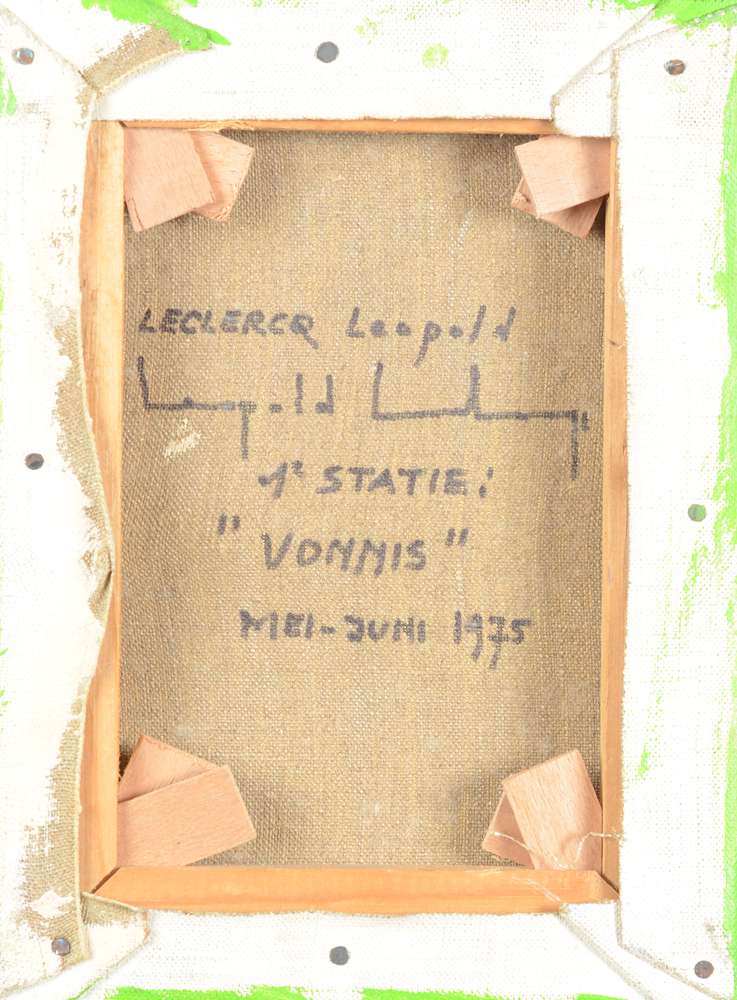 LECLERCQ Leopold
Leopold
1e STATIE:
"VONNIS"
MEI-JUNI 1975